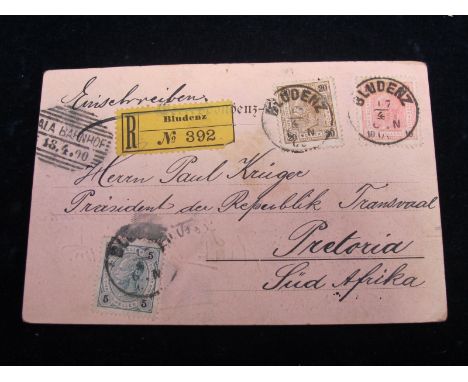 Einschreiben.
ALA BAHNHOF
18.4.00
R
Bludenz
№ 392
20
20 20
BLUDENZ
BLUDENZ
17
4
10 10
Herrn Paul Krüger
Präsident der Republik Transvaal
Pretoria
Süd Afrika
5
5 5